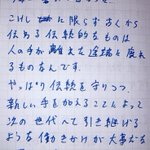 これしに限らず古くから
伝わる伝統的なものは
人の手が離れた途端に廃れ
るものなんです。
やっぱり伝統を守りつつ、
新しい手を加えることによって
次の世代へて引き継げる
ような働きかけが大事だな